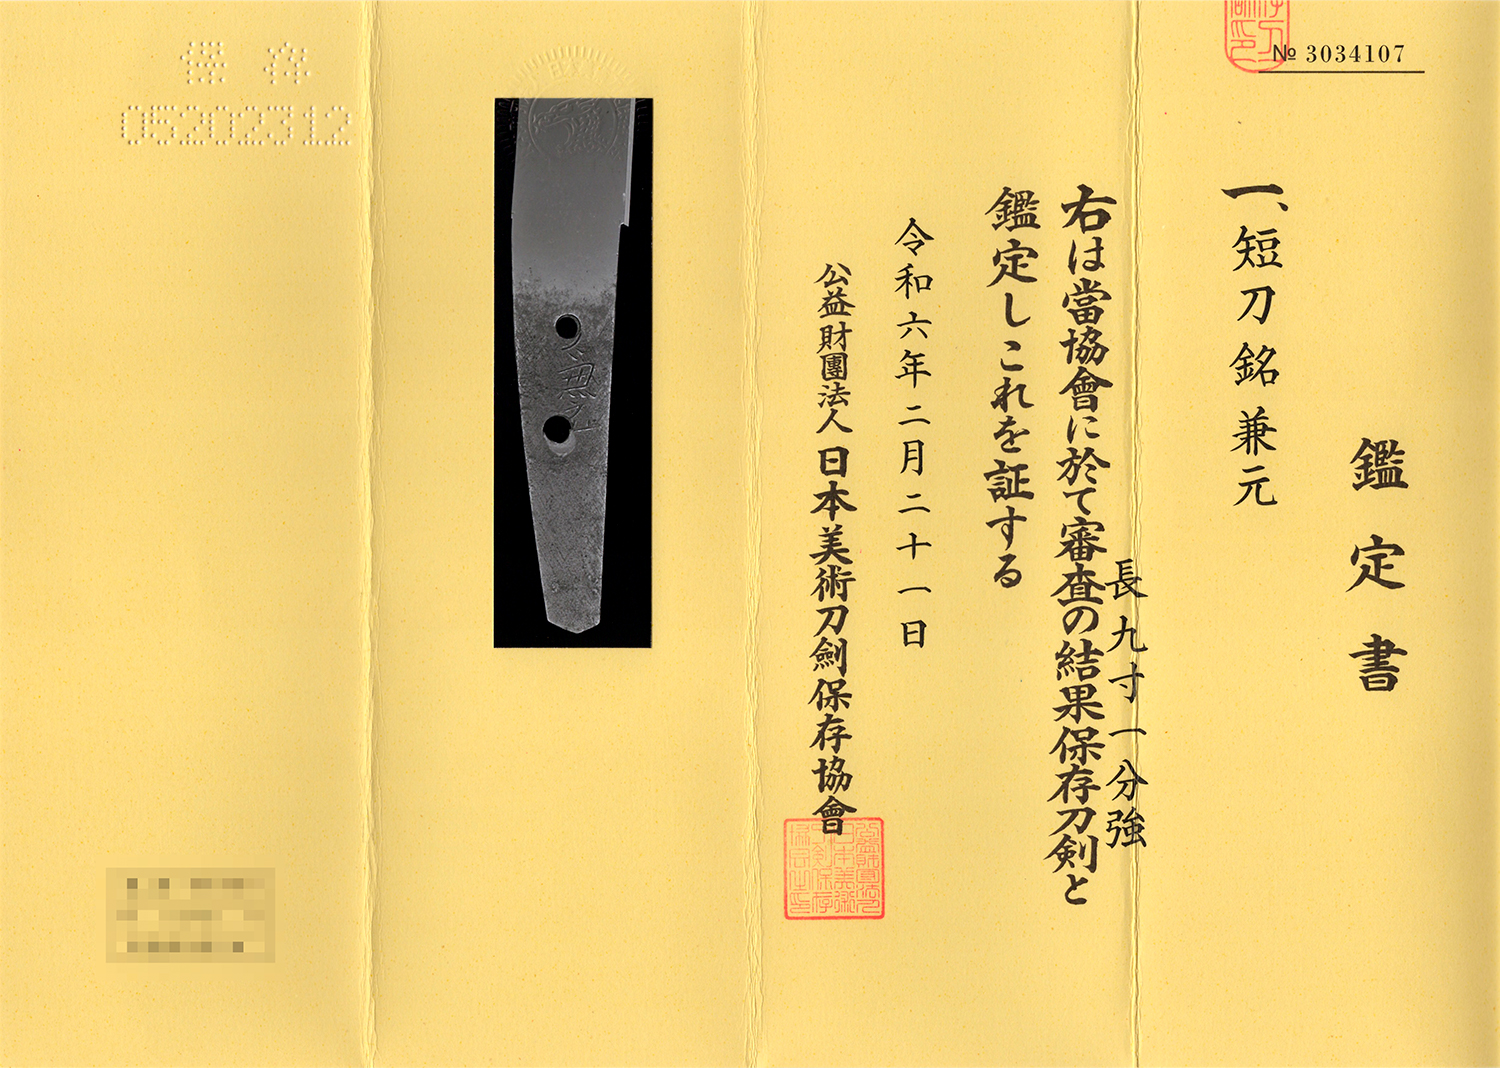 № 3034107
鑑定書
一、短刀 銘 兼元
長九寸一分強
右は當協會に於て審査の結果保存刀剣と
鑑定しこれを証する
令和六年二月二十一日
公益財團法人 日本美術刀劍保存協會
保存
05202312